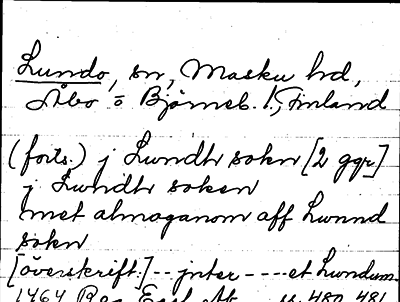 Lundo, sn, Masku hd,
Åbo o Björneb. l., Finland
(forts.) j Lundh sokn [2 ggr]
j Lundh soken
met almoganom aff Lwnnd
sokn
[överskrift:] -- jnter ---- et Lundum
1464 Reg. Eccl. Ab. s. 480, 481